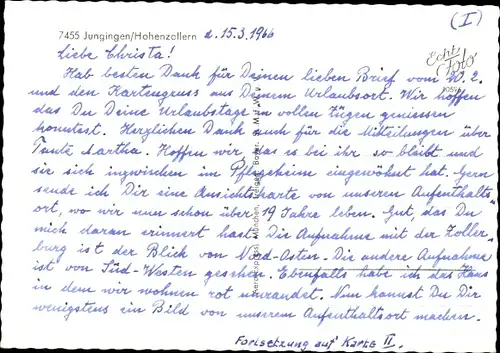 (I)
7455 Jungingen/Hohenzollern d. 15.3.1966
Echt Foto
Liebe Christa!
Hab besten Dank für Deinen lieben Brief vom 20.2.
und den Kartengruss aus Deinem Urlaubsort. Wir hoffen
das Du Deine Urlaubstage in vollen Zügen geniessen
konntest. Herzlichen Dank auch für die Mitteilungen über
Tante Martha. Hoffen wir das es bei ihr so bleibt und
sie sich inzwischen im Pflegeheim eingewöhnt hat. Gern
sende ich Dir eine Ansichtskarte von unseren Aufenthalts"
ort, wo wir nun schon über 19 Jahre leben. Gut, das Du
mich daran erinnert hast. Die Aufnahme mit der Zoller"
burg ist der Blick von Nord-Osten. Die andere Aufnahme
ist von Süd-Westen gesehen. Ebenfalls habe ich das Haus
in dem wir wohnen rot umrandet. Nun kannst Du Dir
wenigstens ein Bild von unserem Aufenthaltsort machen.
Fortsetzung auf Karte II.